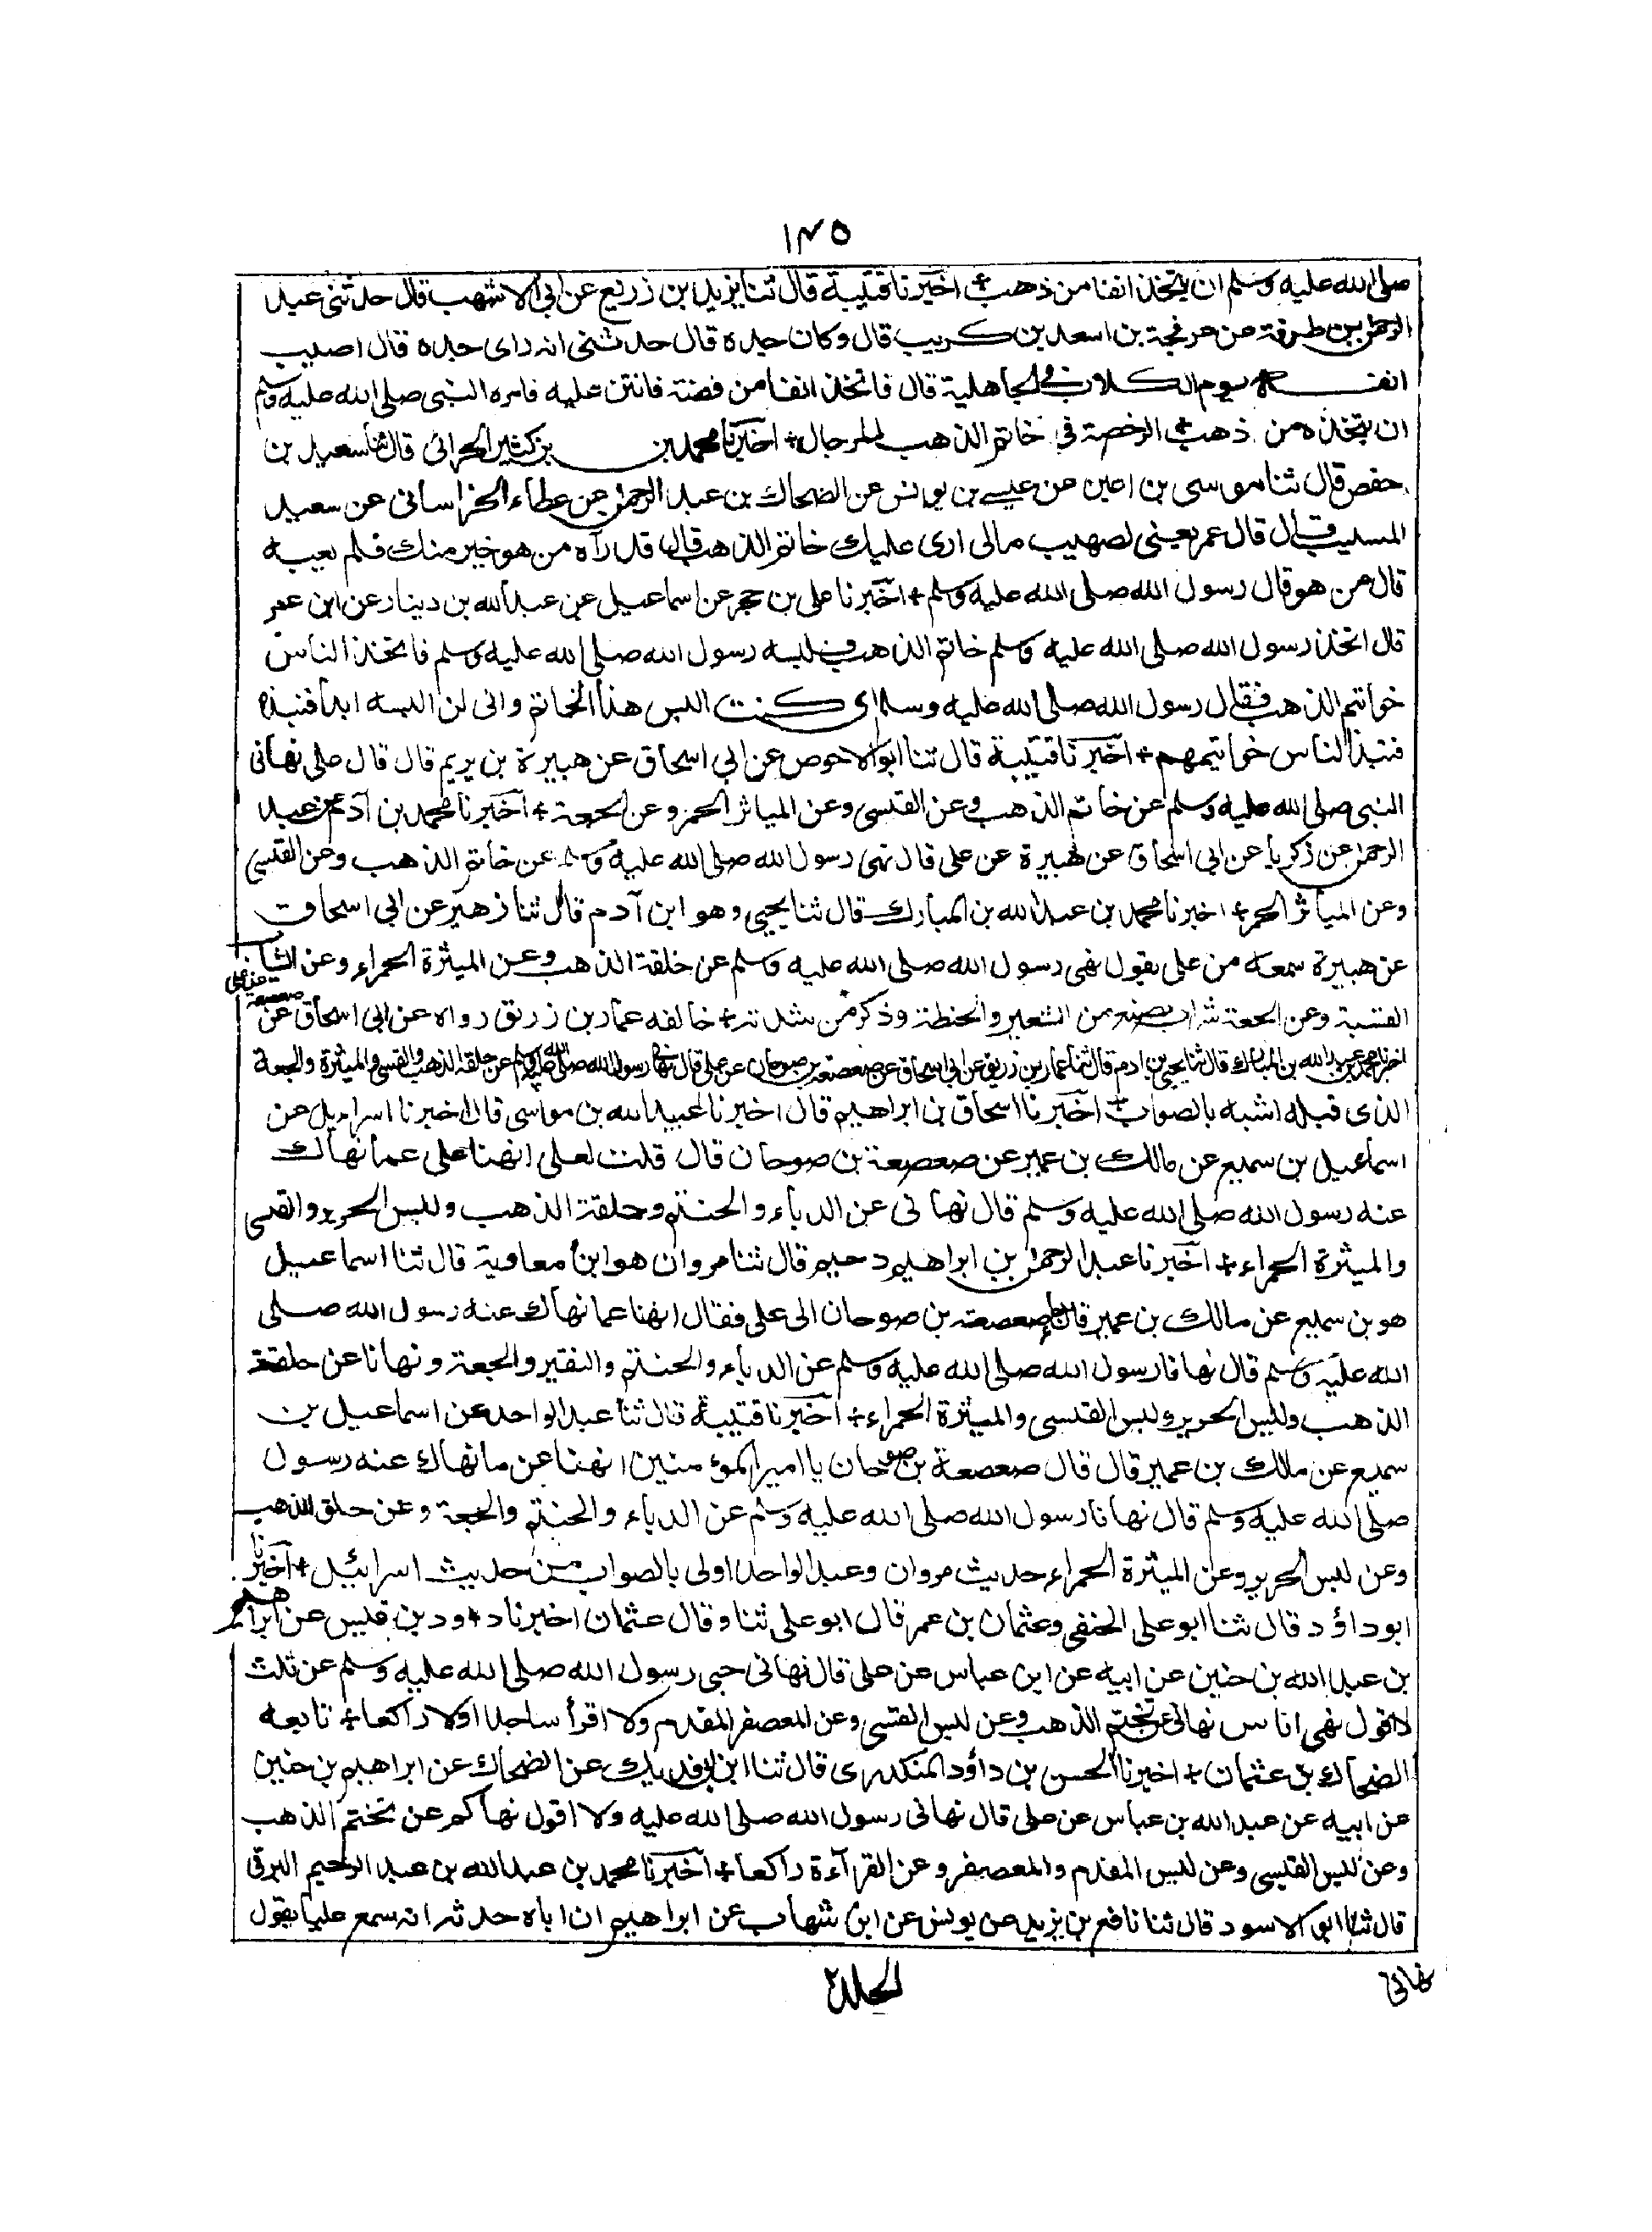 ١٣٥
صلى الله عليه وسلم ان يتخذ انفا من ذهب + اخبرنا قتيبة قال ثنا يزيد بن زريع عن ابى الاشهب قال حدثنى عبد
الرحمن بن طرفة عن عرفجة بن اسعد بن كريب قال وكان جده قال حدثنى انه راى جده قال اصيب
انفه يوم الكلاب فى الجاهلية قال فاتخذ انفا من فضة فانتن عليه فامره النبى صلى الله عليه وسلم
ان يتخذه من ذهب + الرخصة فى خاتم الذهب للرجال + اخبرنا محمد بن بن كثير الحرانى قال ثنا سعيد بن
حفص قال ثنا موسى بن اعين عن عيسى بن يونس عن الضحاك بن عبد الرحمن عن عطاء الخراسانى عن سعيد
المسيب قال قال عمر يعنى لصهيب مالى ارى عليك خاتم الذهب قال قد رآه من هو خير منك فلم يعبه
قال من هو قال رسول الله صلى الله عليه وسلم + اخبرنا على بن حجر عن اسماعيل عن عبد الله بن دينار عن ابن عمر
قال اتخذ رسول الله صلى الله عليه وسلم خاتم الذهب فلبسه رسول الله صلى الله عليه وسلم فاتخذ الناس
خواتيم الذهب فقال رسول الله صلى الله عليه وسلم انى كنت البس هذا الخاتم وانى لن البسه ابدا فنبذه
فنبذ الناس خواتيمهم + اخبرنا قتيبة قال ثنا ابو الاحوص عن ابى اسحاق عن هبيرة بن يريم قال قال على نهانى
النبى صلى الله عليه وسلم عن خاتم الذهب وعن القسى وعن المياثر الحمر وعن الجعة + اخبرنا محمد بن آدم عن عبد
الرحمن عن زكريا عن ابى اسحاق عن هبيرة عن على قال نهى رسول الله صلى الله عليه وسلم عن خاتم الذهب وعن القسى
وعن المياثر الحمر + اخبرنا محمد بن عبد الله بن المبارك قال ثنا يحيى وهو ابن آدم قال ثنا زهير عن ابى اسحاق
عن هبيرة سمعه من على يقول نهى رسول الله صلى الله عليه وسلم عن حلقة الذهب وعن الميثرة الحمراء وعن الثياب
القسية وعن الجعة شراب يصنع من الشعير والحنطة وذكر من شدته + خالفه عمار بن زريق رواه عن ابى اسحاق عن صعصعة عن على
اخبرنا محمد بن عبد الله بن المبارك قال ثنا يحيى بن ادم قال ثنا عمار بن زريق عن ابى اسحاق عن صعصعة بن صوحان عن على قال نهانا رسول الله صلى الله عليه وسلم عن حلقة الذهب والقسى والميثرة والجعة
الذى قبله اشبه بالصواب + اخبرنا اسحاق بن ابراهيم قال اخبرنا عبيد الله بن موسى قال اخبرنا اسرائيل عن
اسماعيل بن سميع عن مالك بن عمير عن صعصعة بن صوحان قال قلت لعلى انهنا على عما نهاك
عنه رسول الله صلى الله عليه وسلم قال نهانى عن الدباء والحنتم وحلقة الذهب ولبس الحرير والقسى
والميثرة الحمراء + اخبرنا عبد الرحمن بن ابراهيم دحيم قال ثنا مروان هو ابن معاوية قال ثنا اسماعيل
هو بن سميع عن مالك بن عمير قال جاء صعصعة بن صوحان الى على فقال انهنا عما نهاك عنه رسول الله صلى
الله عليه وسلم قال نهانا رسول الله صلى الله عليه وسلم عن الدباء والحنتم والنقير والجعة ونهانا عن حلقة
الذهب ولبس الحرير ولبس القسى والميثرة الحمراء + اخبرنا قتيبة قال ثنا عبد الواحد عن اسماعيل بن
سميع عن مالك بن عمير قال قال صعصعة بن صوحان يا امير المؤمنين انهنا عن ما نهاك عنه رسول
صلى الله عليه وسلم قال نهانا رسول الله صلى الله عليه وسلم عن الدباء والحنتم والجعة وعن حلق الذهب
وعن لبس الحرير وعن الميثرة الحمراء حديث مروان وعبد الواحد اولى بالصواب من حديث اسرائيل + اخبرنا
ابو داؤد قال ثنا ابو على الحنفى وعثمان بن عمر قال ابو على ثنا وقال عثمان اخبرنا داود بن قيس عن ابراهيم
بن عبد الله بن حنين عن ابيه عن ابن عباس عن على قال نهانى حبى رسول الله صلى الله عليه وسلم عن ثلث
لا اقول نهى الناس نهانى عن تختم الذهب وعن لبس القسى وعن المعصفر المفدم ولا اقرأ ساجدا ولا راكعا + تابعه
الضحاك بن عثمان + اخبرنا الحسن بن داؤد المنكدرى قال ثنا ابن ابى فديك عن الضحاك عن ابراهيم بن حنين
عن ابيه عن عبد الله بن عباس عن على قال نهانى رسول الله صلى الله عليه ولا اقول نهاكم عن تختم الذهب
وعن لبس القسى وعن لبس المفدم والمعصفر وعن القرآءة راكعا + اخبرنا محمد بن عبد الله بن عبد الرحيم البرقى
قال ثنا ابو الاسود قال ثنا نافع بن يزيد عن يونس عن ابن شهاب عن ابراهيم ان اباه حدثه انه سمع عليا يقول
نهانى
الجلد٢